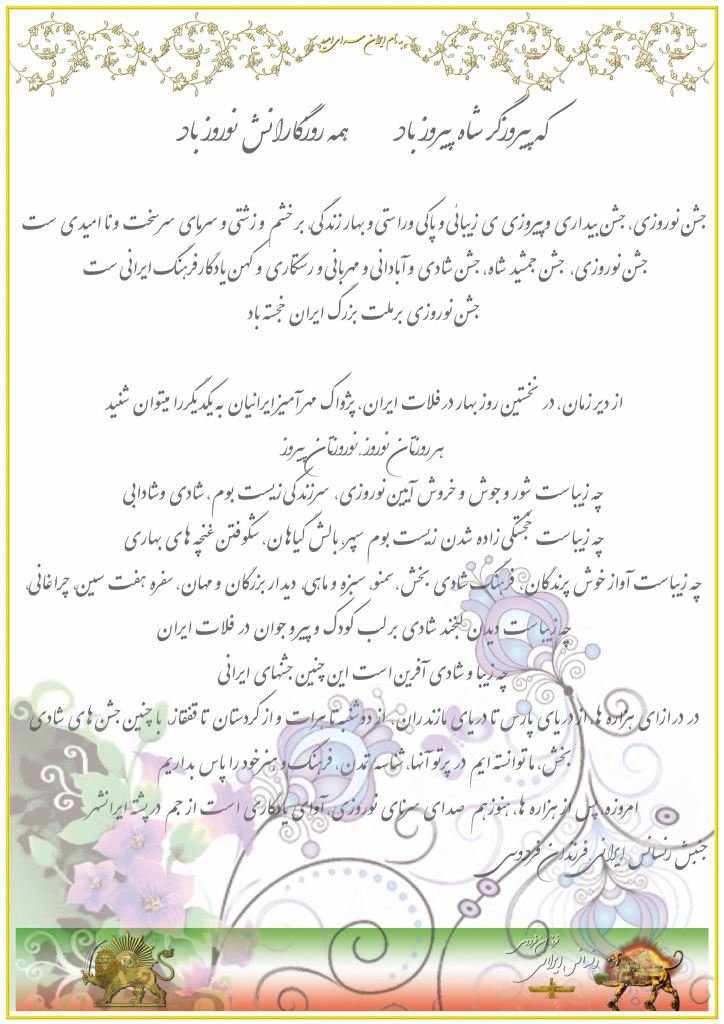 به نام ایران سرای امید
که پیروزگر شاه پیروز باد همه روزگارانش نوروز باد
جشن نوروزی، جشن بیداری و پیروزی ی زیبائی و پاکی وراستی و بهار زندگی، بر خشم و زشتی و سرمای سرسخت و نا امیدی ست
جشن نوروزی، جشن جمشید شاه، جشن شادی و آبادانی و مهربانی و رستگاری و کهن یادگار فرهنگ ایرانی ست
جشن نوروزی بر ملت بزرگ ایران خجسته باد
از دیر زمان، در نخستین روز بهار در فلات ایران، پژواک مهرآمیز ایرانیان به یکدیگر را میتوان شنید
هر روزتان نوروز. نوروزتان پیروز
چه زیباست شور و جوش و خروش آیین نوروزی، سرزندگی زیست بوم، شادی و شادابی
چه زیباست خجستگی زاده شدن زیست بوم سپهر، بالش گیاهان، شکوفتن غنچه های بهاری
چه زیباست آواز خوش پرندگان، فرهنگ شادی بخش، سمنو، سبزه و ماهی، دیدار بزرگان و مهان، سفره هفت سین، چراغانی،
چه زیباست دیدن لبخند شادی بر لب کودک و پیر و جوان در فلات ایران
چه زیبا و شادی آفرین است این چنین جشنهای ایرانی
در درازای هزاره ها، از دریای پارس تا دریای مازندران، از دوشنبه تا هرات و از کردستان تا قفقاز، با چنین جشن های شادی
بخش، ما توانسته ایم در پرتو آنها، شناسه تمدن، فرهنگ و هنر خود را پاس بداریم
امروزه، پس از هزاره ها، هنوز هم صدای سرنای نوروزی، آوای یادگاری است از جم در پشته ایرانشهر
جنبش رنسانس ایرانی. فرزندان فردوسی
فرزندان فردوسی
رنسانس ایرانی